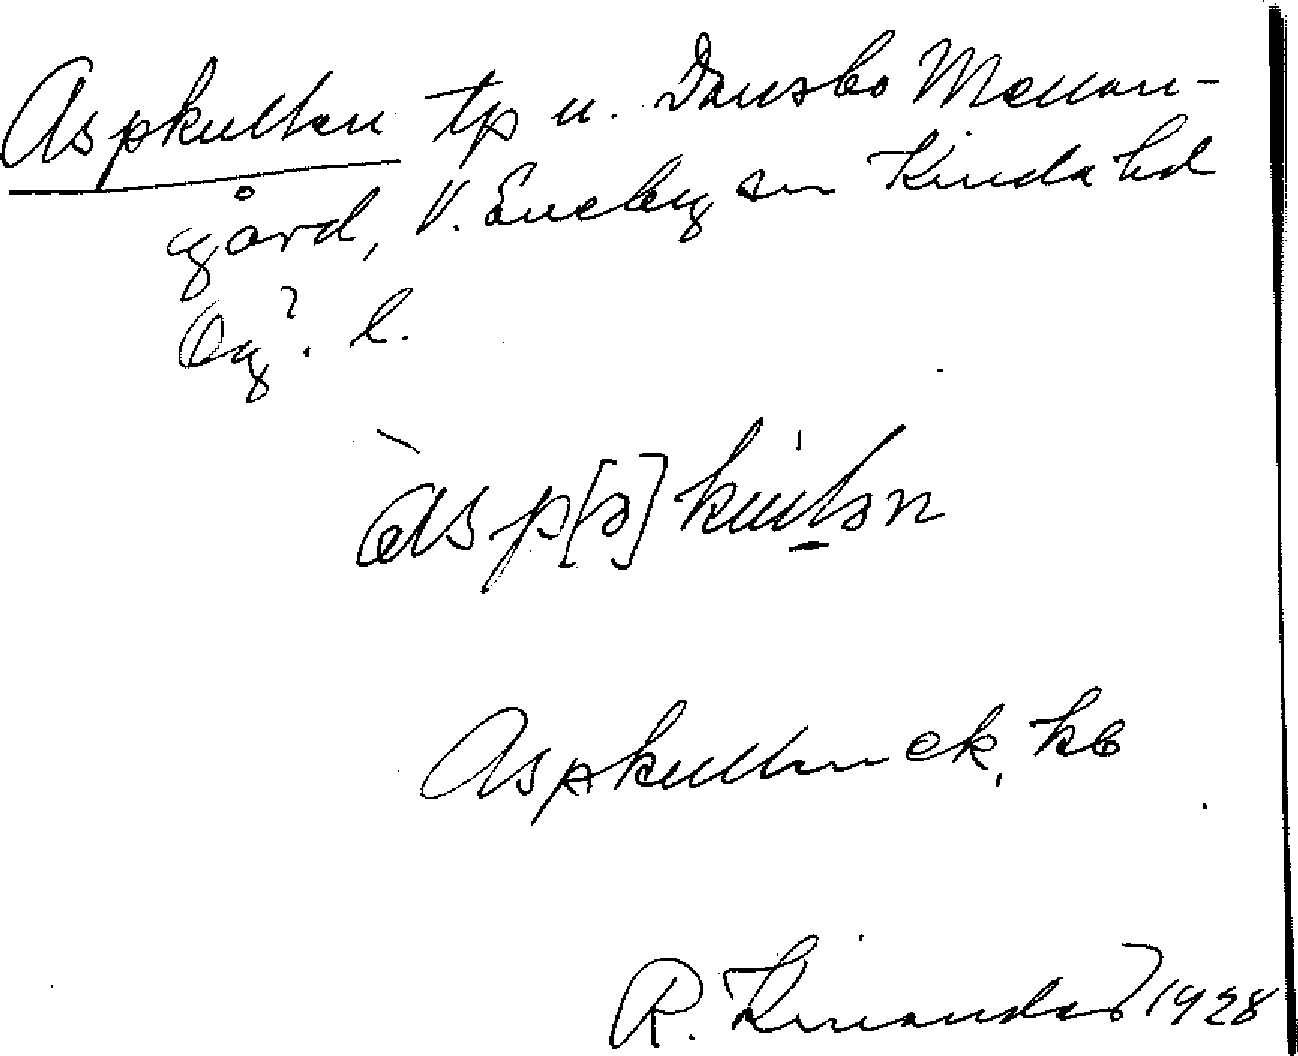 Aspkullen tp u. Dansbo Mellan-
gård, V. Eneby sn Kinda hd
Ög. l.
asp[ə]kulən
Aspkullen ek. kb
R. Kinander 1928